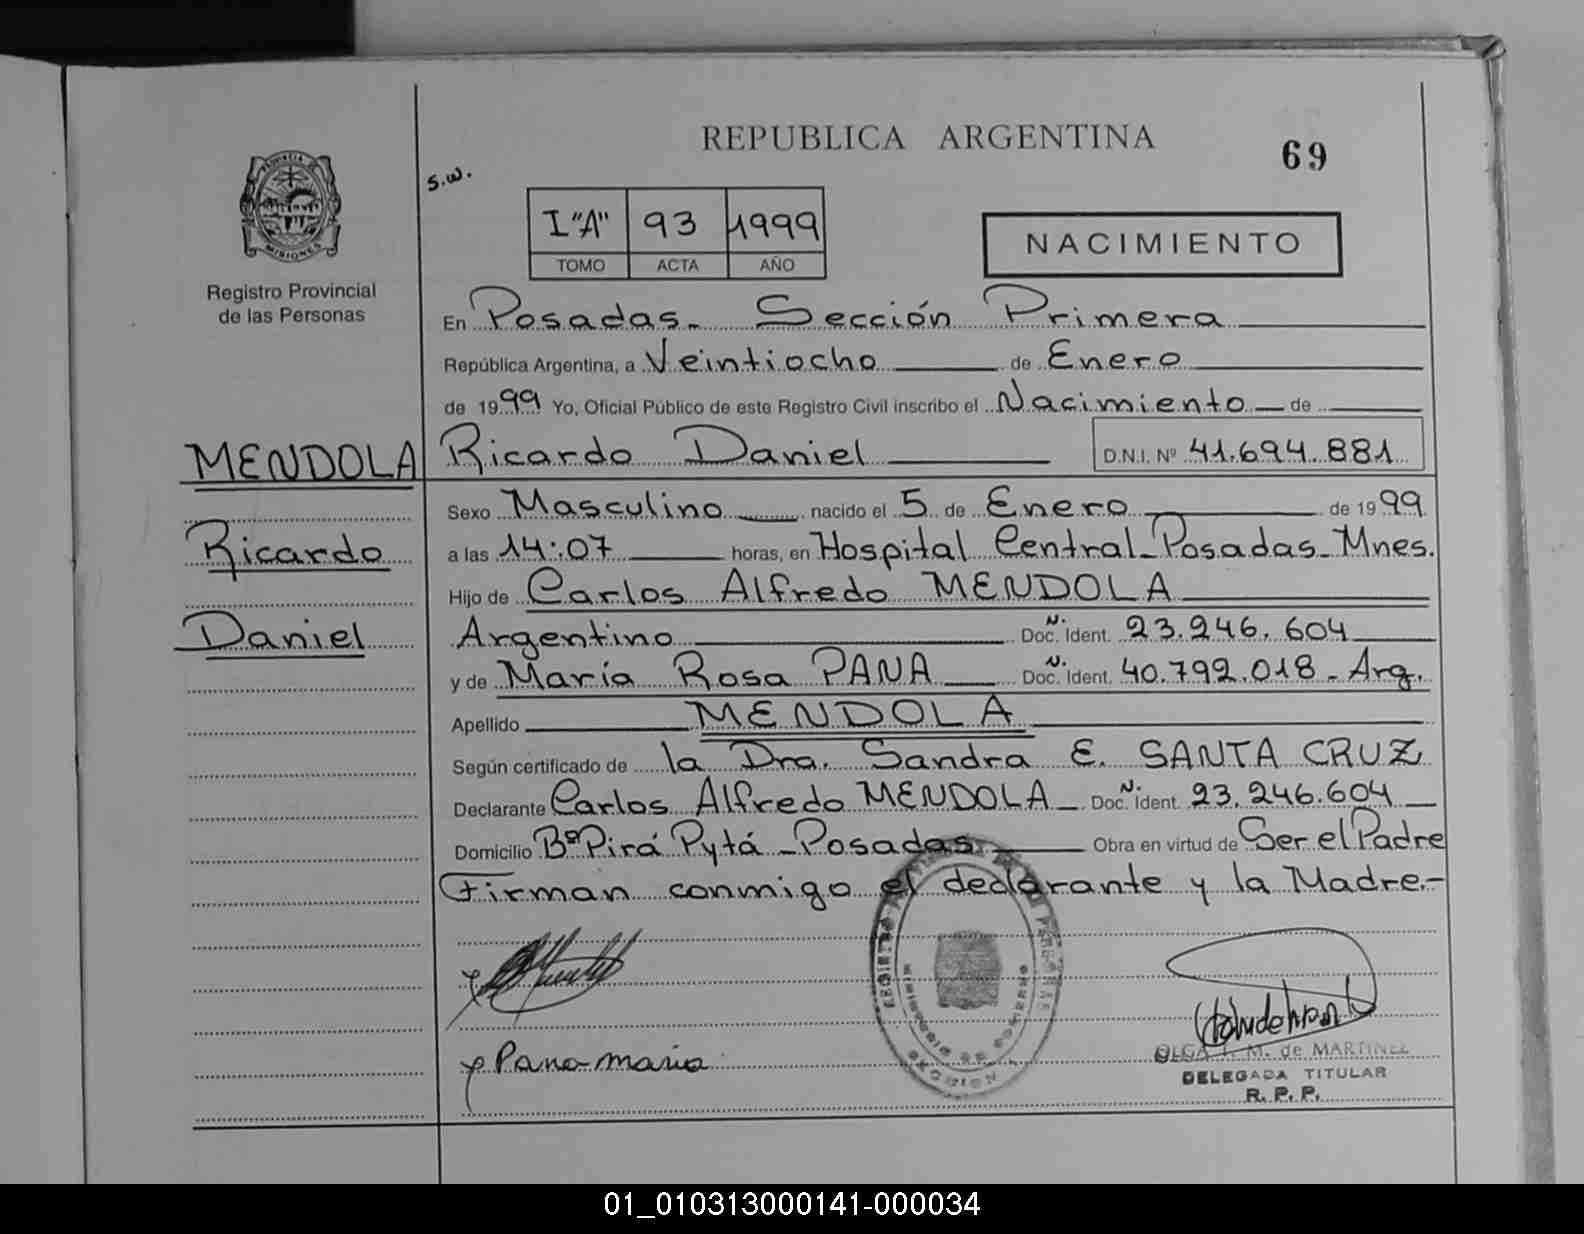 REPUBLICA ARGENTINA
69
s.w.
I "A" 93 1999
TOMO ACTA AÑO
NACIMIENTO
PROVINCIA DE MISIONES
Registro Provincial
de las Personas
En Posadas. Sección Primera
República Argentina, a Veintiocho de Enero
de 1999 Yo, Oficial Público de este Registro Civil inscribo el Nacimiento de
MENDOLA Ricardo Daniel D.N.I. Nº 41.694.881
Sexo Masculino nacido el 5 de Enero de 1999
Ricardo a las 14:07 horas, en Hospital Central-Posadas-Mnes.
Hijo de Carlos Alfredo MENDOLA
Daniel Argentino Doc. N. Ident. 23.246.604
y de María Rosa PANA Doc. N. Ident. 40.792.018 - Arg.
Apellido MENDOLA
Según certificado de la Dra. Sandra E. SANTA CRUZ
Declarante Carlos Alfredo MENDOLA Doc. N. Ident. 23.246.604
Domicilio Bº Pirá Pytá - Posadas Obra en virtud de Ser el Padre
Firman conmigo el declarante y la Madre.-
x
x Pana maria
OLGA M. de MARTINEZ
DELEGADA TITULAR
R. P. P.
01_010313000141-000034